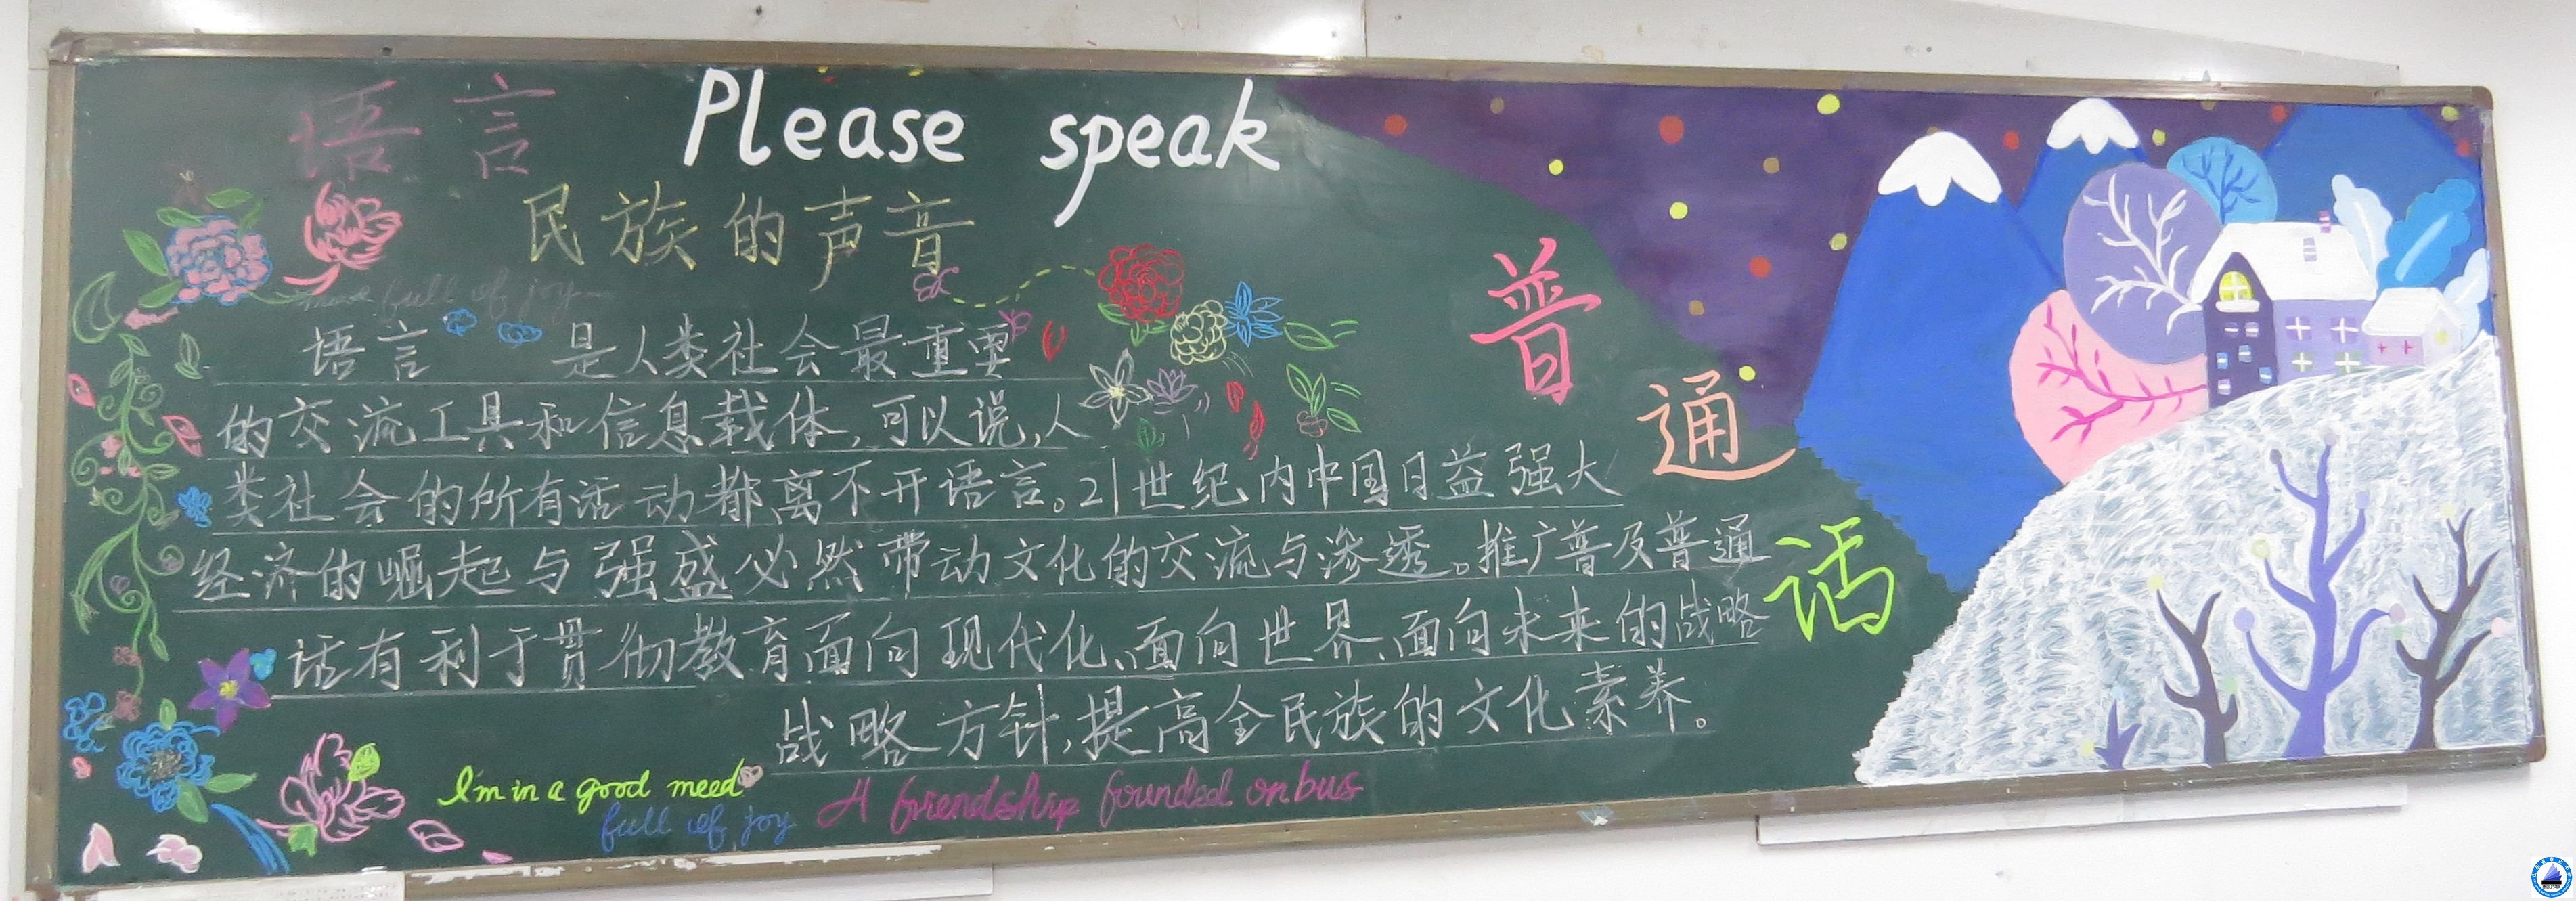 语言
Please speak
民族的声音
普通话
full of joy
语言 是人类社会最重要
的交流工具和信息载体,可以说,人
类社会的所有活动都离不开语言。21世纪内中国日益强大
经济的崛起与强盛必然带动文化的交流与渗透。推广普及普通
话有利于贯彻教育面向现代化、面向世界、面向未来的战略
战略方针,提高全民族的文化素养。
I'm in a good meed
full of joy
A friendship founded on bus